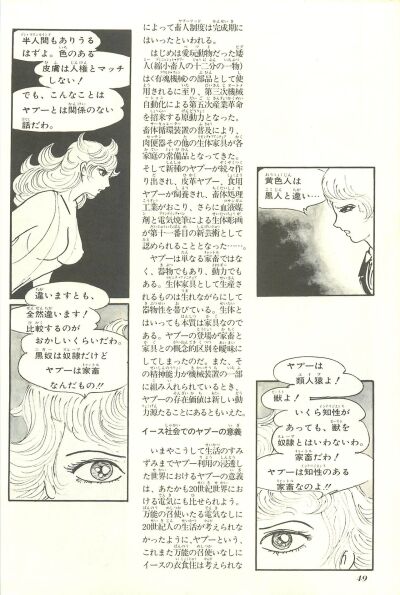 半人間もありうる
はずよ。色のある
皮膚は人権とマッチ
しない！
でも、こんなことは
ヤプーとは関係のない
話だわ。
違いますとも、
全然違います！
比較するのが
おかしいくらいだわ。
黒奴は奴隷だけど
ヤプーは家畜
なんだもの!!
によって畜人制度は完成期に
はいったといわれる。
はじめは愛玩動物だった矮
人（縮小畜人の十二分の一物）
は〈有魂機械〉の部品として使
用されるに至り、第三次機械
自動化による第五次産業革命
を招来する原動力となった。
畜体循環装置の普及により、
肉便器その他の生体家具が各
家庭の常備品となってきた。
そして新種のヤプーが続々作
り出され、皮革ヤプー、食用
ヤプーが飼養され、畜体処理
工業がおこり、さらに血液媒
剤と電気焼筆による生体彫画
が第十一番目の新芸術として
認められることとなった……。
ヤプーは単なる家畜ではな
く、器物でもあり、動力でも
ある。生体家具として生産さ
れるものは生れながらにして
器物性を帯びている。生体と
はいっても本質は家具なので
ある。ヤプーの登場が家畜と
家具との概念的区別を曖昧に
してしまったのだ。また、そ
の精神能力が機械装置の一部
に組み入れられているとき、
ヤプーの存在価値は新しい動
力源たることにあるともいえた。
イース社会でのヤプーの意義
いまやこうして生活のすみ
ずみまでヤプー利用の浸透し
た世界におけるヤプーの意義
は、あたかも20世紀世界にお
ける電気にも比せられよう。
万能の召使いたる電気なしに
20世紀人の生活が考えられな
かったように、ヤプーという、
これまた万能の召使いなしに
イースの衣食住は考えられな
黄色人は
黒人と違い…
ヤプーは
類人猿よ！
獣よ！
いくら知性が
あっても、獣を
奴隷とはいわないわ。
家畜だわ！
ヤプーは知性のある
家畜なのよ!!
49